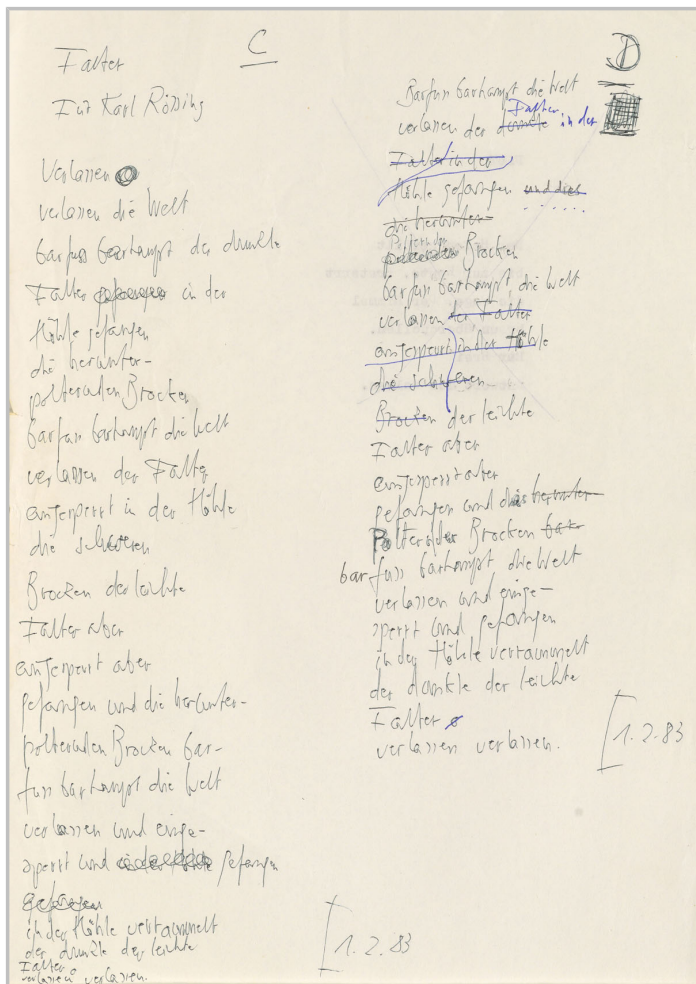 C
Falter
Für Karl Rössing
Verlassen
verlassen die Welt
barfuss barhaupt der dunkle
Falter gefangen in der
Höhle gefangen
die herunter-
polternden Brocken
barfuss barhaupt die Welt
verlassen der Falter
eingesperrt in der Höhle
die schweren
Brocken der leichte
Falter aber
eingesperrt aber
gefangen und die herunter-
polternden Brocken bar-
fuss barhaupt die Welt
verlassen und einge-
sperrt und gefangen
gefangen
in der Höhle vertaumelt
der dunkle der leichte
Falter
verlassen verlassen.
[1.2.83
D
Barfuss barhaupt die Welt
Falter
verlassen der dunkle in der
Falter in der
Höhle gefangen und die
die herunter-
Polternde
polternden Brocken
barfuss barhaupt, die Welt
verlassen der Falter
eingesperrt in der Höhle
die schweren
Brocken der leichte
Falter aber
eingesperrt aber
gefangen und die herunter
Polternder Brocken bar
barfuss barhaupt die Welt
verlassen und einge-
sperrt und gefangen
in der Höhle vertaumelt
der dunkle der leichte
Falter
verlassen verlassen.
[1.2.83